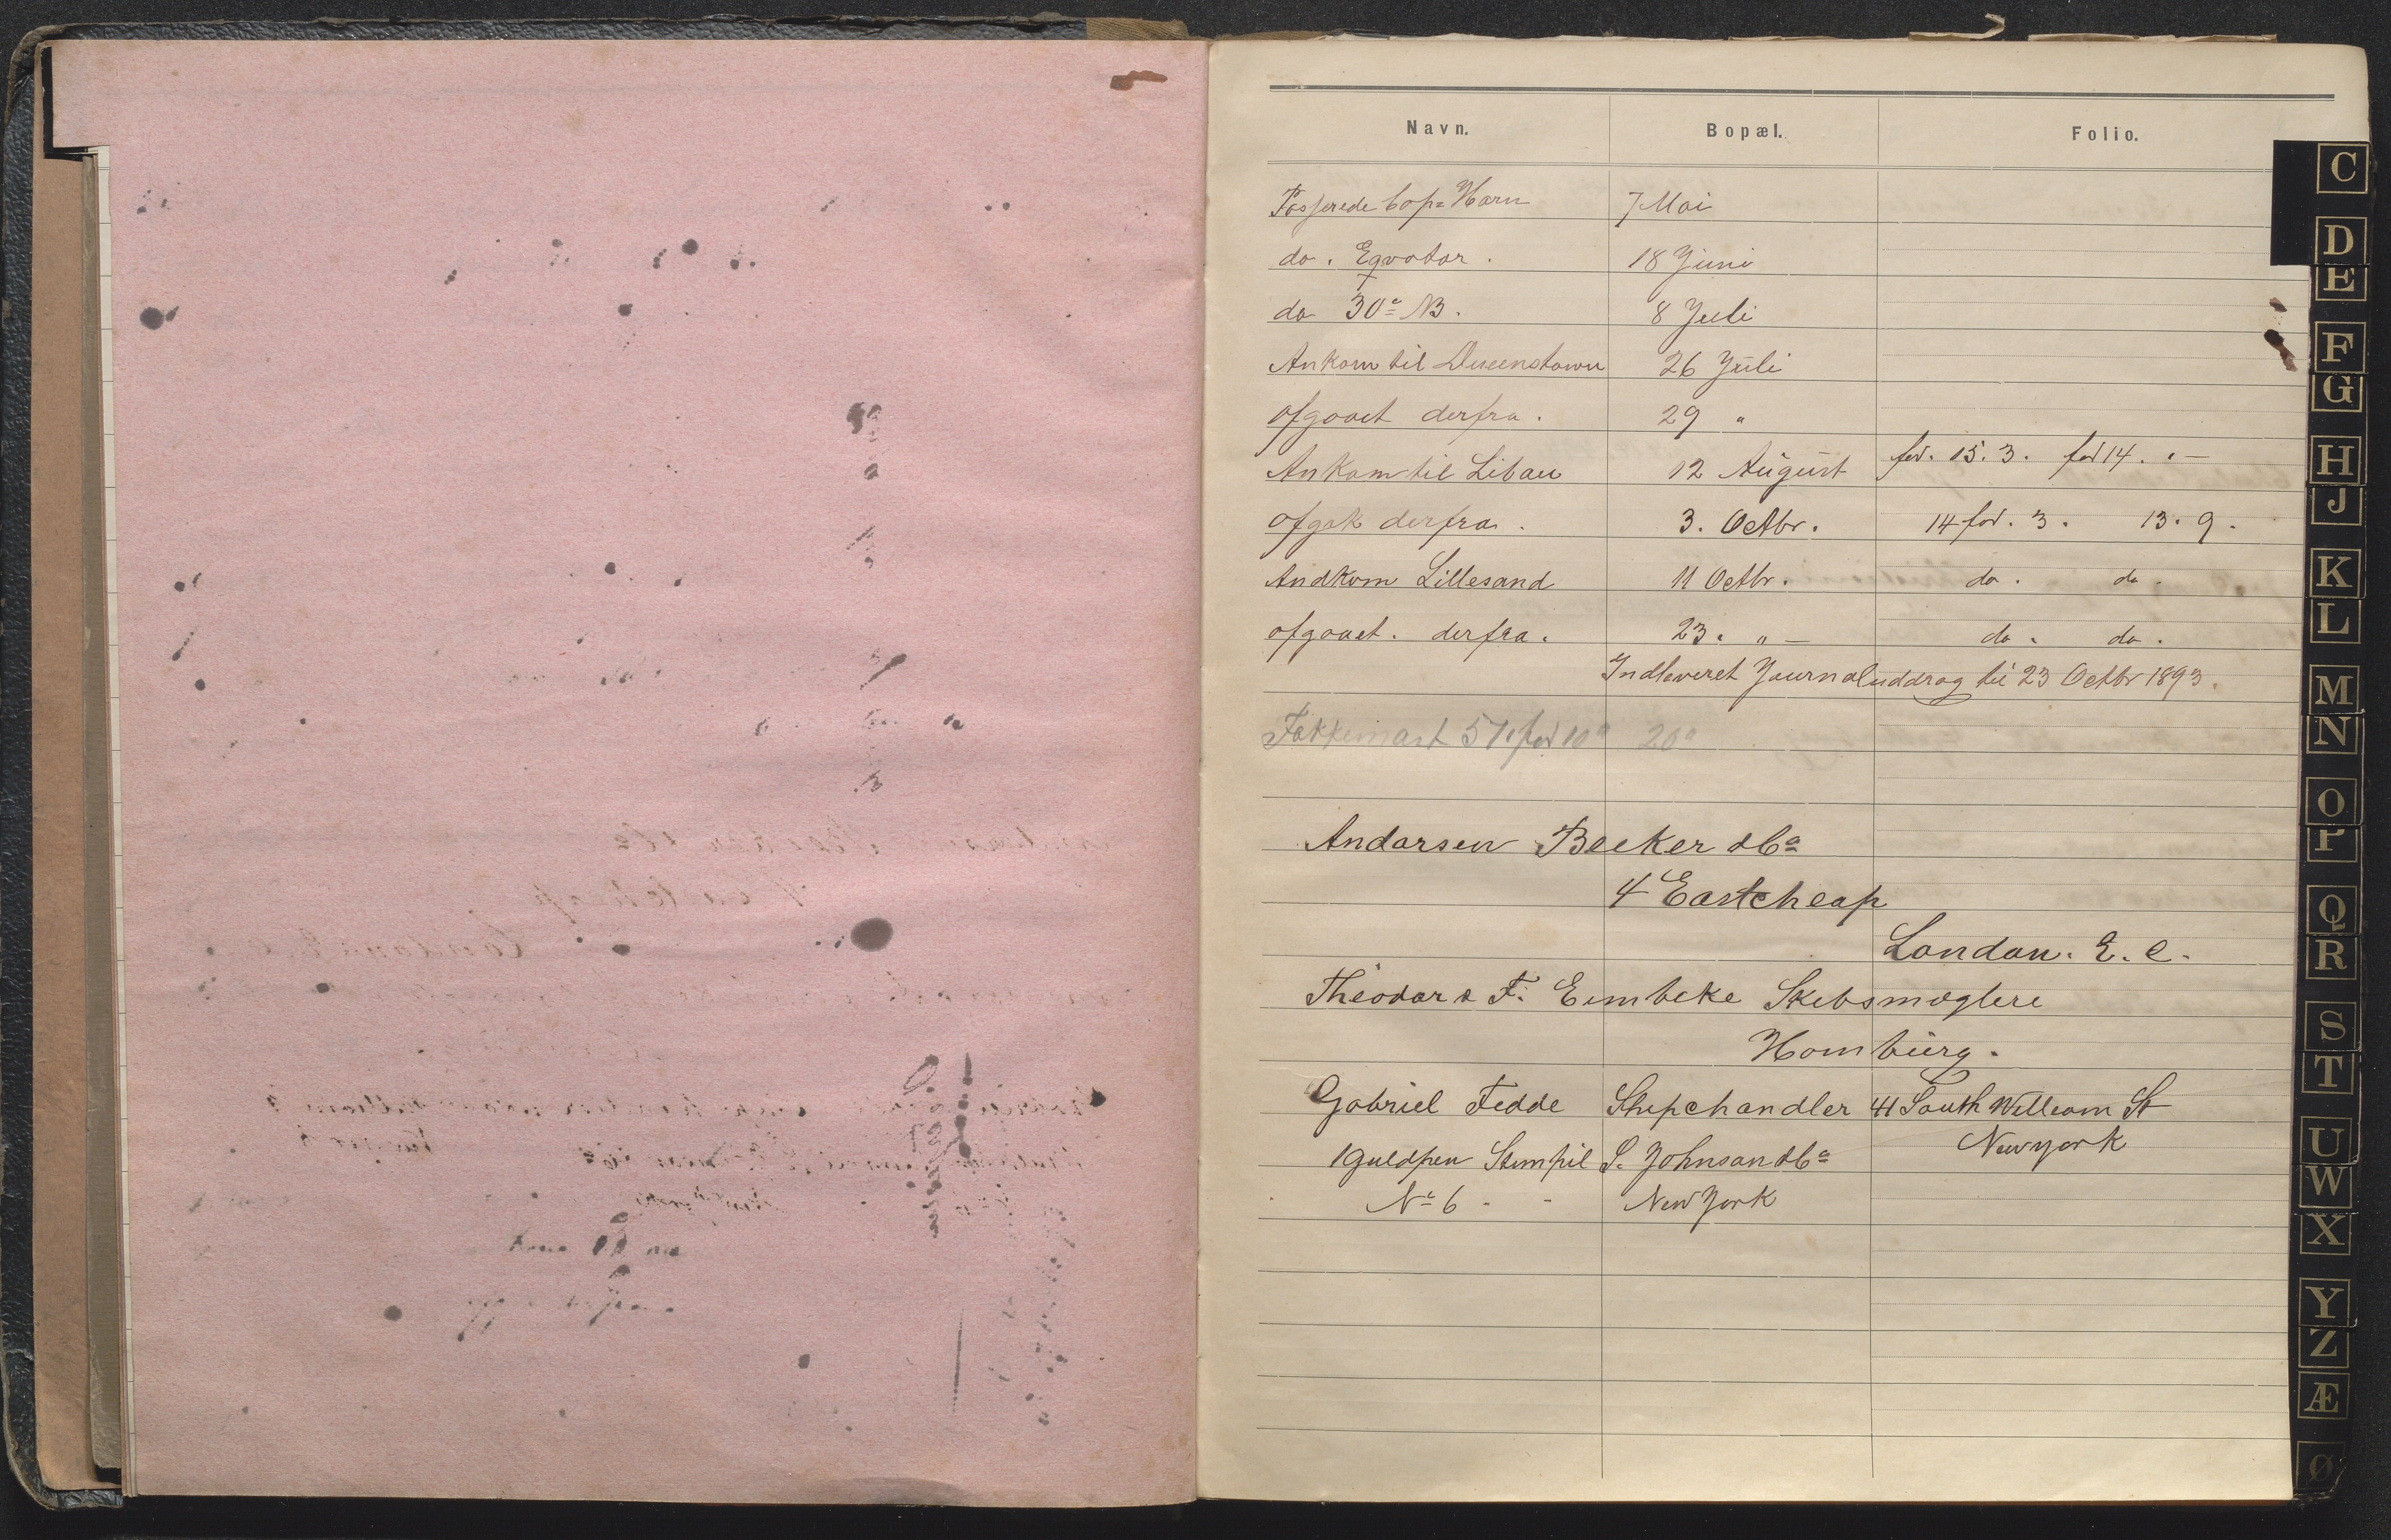 Navn. Bopæl. Folio.
Passerede Cap= Horn 7 Mai
do. Eqvator. 18 Juni
do 30° NB. 8 Juli
Ankom til Queenstown 26 Juli
afgaaet derfra. 29 "
Ankom til Libau 12 August fod. 15. 3. fod 14. " —
afgek derfra. 3. Octbr. 14 fod. 3. 13. 9.
Andkom Lillesand 11 Octbr. do. do.
afgaaet. derfra. 23. " — do. do.
Indleveret Journaluddrag til 23 Octbr 1893.
Fokkemast 57 fod 10" 20"
Andarsen Becker & Co
4 Eastcheap
London. E. C.
Theodor & F. Eimbcke Skibsmæglere
Hamburg.
Gabriel Fedde Shipchandler 41 South William St
Newyork
1 Guldpen Stempil S. Johnson & Co
No 6 - - New York
C
D
E
F
G
H
J
K
L
M
N
O
P
Q
R
S
T
U
W
X
Y
Z
Æ
Ø